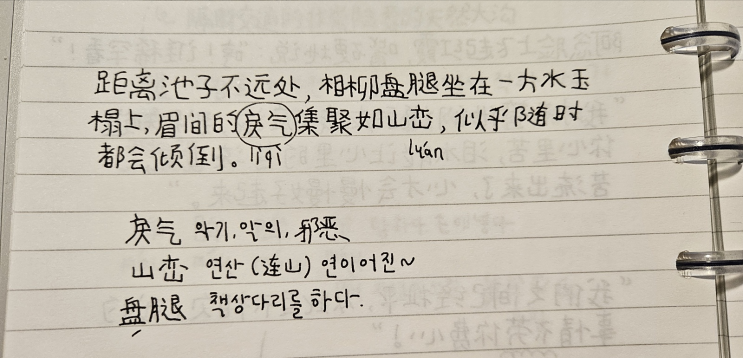 距离池子不远处，相柳盘腿坐在一方水玉
榻上，眉间的戾气集聚如山峦，似乎随时
都会倾倒。lìqì luán
戾气 악기, 악의, 邪恶
山峦 연산 (连山) 연이어진~
盘腿 책상다리를 하다.